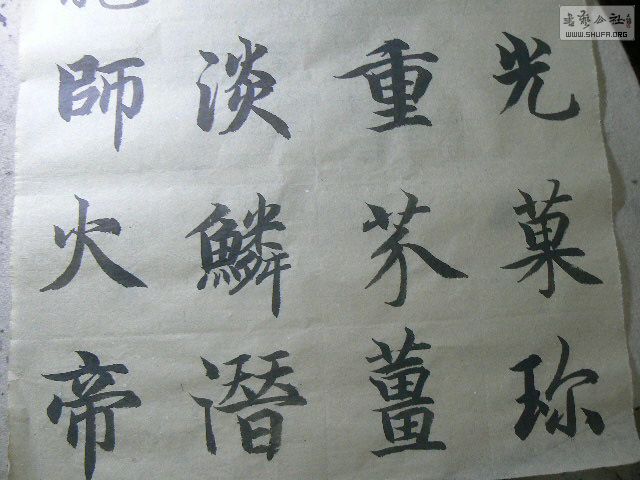 光菓珍
重芥薑
淡鱗潛
師火帝
书艺公社
WWW.SHUFA.ORG